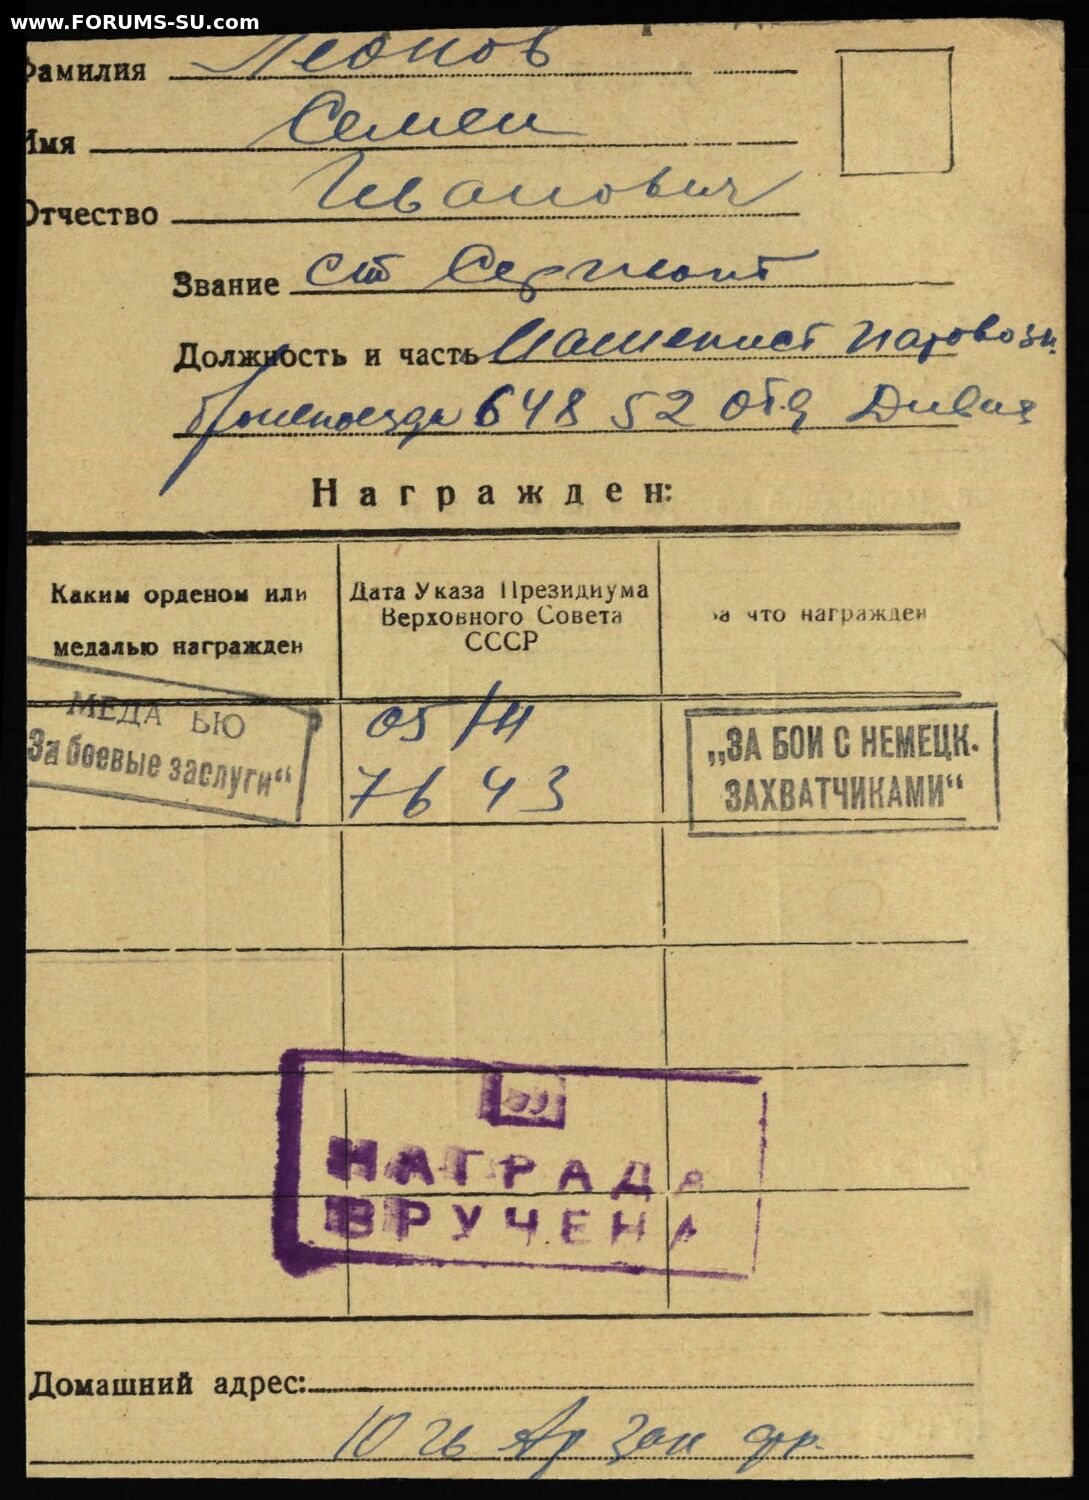 www.FORUMS-SU.com
Фамилия Леонов
Имя Семен
Отчество Иванович
Звание ст Сержант
Должность и часть Машенист Паровоза
бронепоезда 648 52 отд Дивиз
Награжден:
Каким орденом или
медалью награжден
Дата Указа Президиума
Верховного Совета
СССР
за что награжден
МЕДАЛЬЮ
„За боевые заслуги“
05/H
7 6 43
„ЗА БОИ С НЕМЕЦК.
ЗАХВАТЧИКАМИ“
НАГРАДА
ВРУЧЕНА
Домашний адрес:
Зап фр.